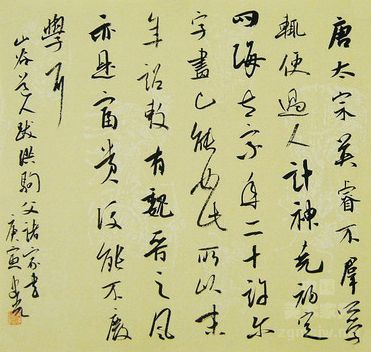 唐太宗英睿不羣學
輒便過人計神堯初定
四海太宗年二十許尔
字畫已能如此所以末
年詔敕有魏晉之風
亦是富貴後能不廢
學耳
山谷道人跋洪駒父諸家書
庚寅